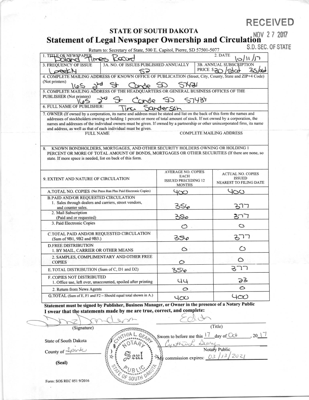 RECEIVED
NOV 27 2017
S.D. SEC. OF STATE
STATE OF SOUTH DAKOTA
Statement of Legal Newspaper Ownership and Circulation
Return to: Secretary of State, 500 E. Capitol, Pierre, SD 57501-5077
1. TITLE OF NEWSPAPER
2. DATE
10/11/17
3. FREQUENCY OF ISSUE
3A. NO. OF ISSUES PUBLISHED ANNUALLY
3B. ANNUAL SUBSCRIPTION
PRICE
52
4. COMPLETE MAILING ADDRESS OF KNOWN OFFICE OF PUBLICATION (Street, City, County, State and ZIP+4 Code)
(Not printers)
165 2nd St Conde SD
5. COMPLETE MAILING ADDRESS OF THE HEADQUARTERS OR GENERAL BUSINESS OFFICES OF THE
PUBLISHER (Not printers)
165 2nd St Conde SD
6. FULL NAME OF PUBLISHER:
7. OWNER (If owned by a corporation, its name and address must be stated and list on the back of this form the names and
addresses of stockholders owning or holding 1 percent or more of total amount of stock. If not owned by a corporation, the
names and addresses of the individual owners must be given. If owned by a partnership or other unincorporated firm, its name
and address, as well as that of each individual must be given.
FULL NAME
COMPLETE MAILING ADDRESS
8. KNOWN BONDHOLDERS, MORTGAGEES, AND OTHER SECURITY HOLDERS OWNING OR HOLDING 1
PERCENT OR MORE OF TOTAL AMOUNT OF BONDS, MORTGAGES OR OTHER SECURITIES (If there are none, so
state. If more space is needed, list on back of this form.
9. EXTENT AND NATURE OF CIRCULATION
AVERAGE NO. COPIES
EACH
ISSUED PRECEDING 12
MONTHS
ACTUAL NO. COPIES
ISSUED
NEAREST TO FILING DATE
A. TOTAL NO. COPIES
400
400
B. PAID AND/OR REQUESTED CIRCULATION
1. Sales through dealers and carriers, street vendors,
and counter sales.
356
377
2. Mail Subscription
(Paid and or requested)
377
3. Paid Electronic Copies
0
0
C. TOTAL PAID AND/OR REQUESTED CIRCULATION
(Sum of 9B1, 9B2 and 9B3.)
356
377
D. FREE DISTRIBUTION
1. BY MAIL, CARRIER OR OTHER MEANS
0
0
2. SAMPLES, COMPLIMENTARY AND OTHER FREE
COPIES
0
0
E. TOTAL DISTRIBUTION (Sum of C, D1 and D2)
356
377
F. COPIES NOT DISTRIBUTED
1. Office use, left over, unaccounted, spoiled after printing
44
23
2. Return from News Agents
0
0
G. TOTAL (Sum of E, F1 and F2 – Should equal total shown in A.)
400
400
Statement must be signed by Publisher, Business Manager, or Owner in the presence of a Notary Public
I swear that the statements made by me are true, correct, and complete:
Editor
(Signature)
(Title)
State of South Dakota
Sworn to before me this 17 day of Oct 2017
County of
Notary Public
(Seal)
My commission expires:
Seal